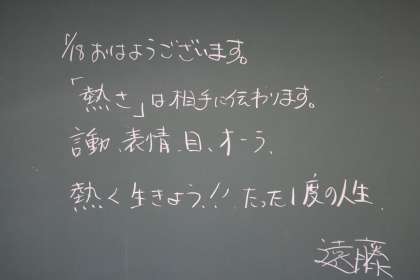 5/18 おはようございます。
「熱さ」は相手に伝わります。
言動、表情、目、オーラ、
熱く生きよう!! たった1度の人生、
遠藤